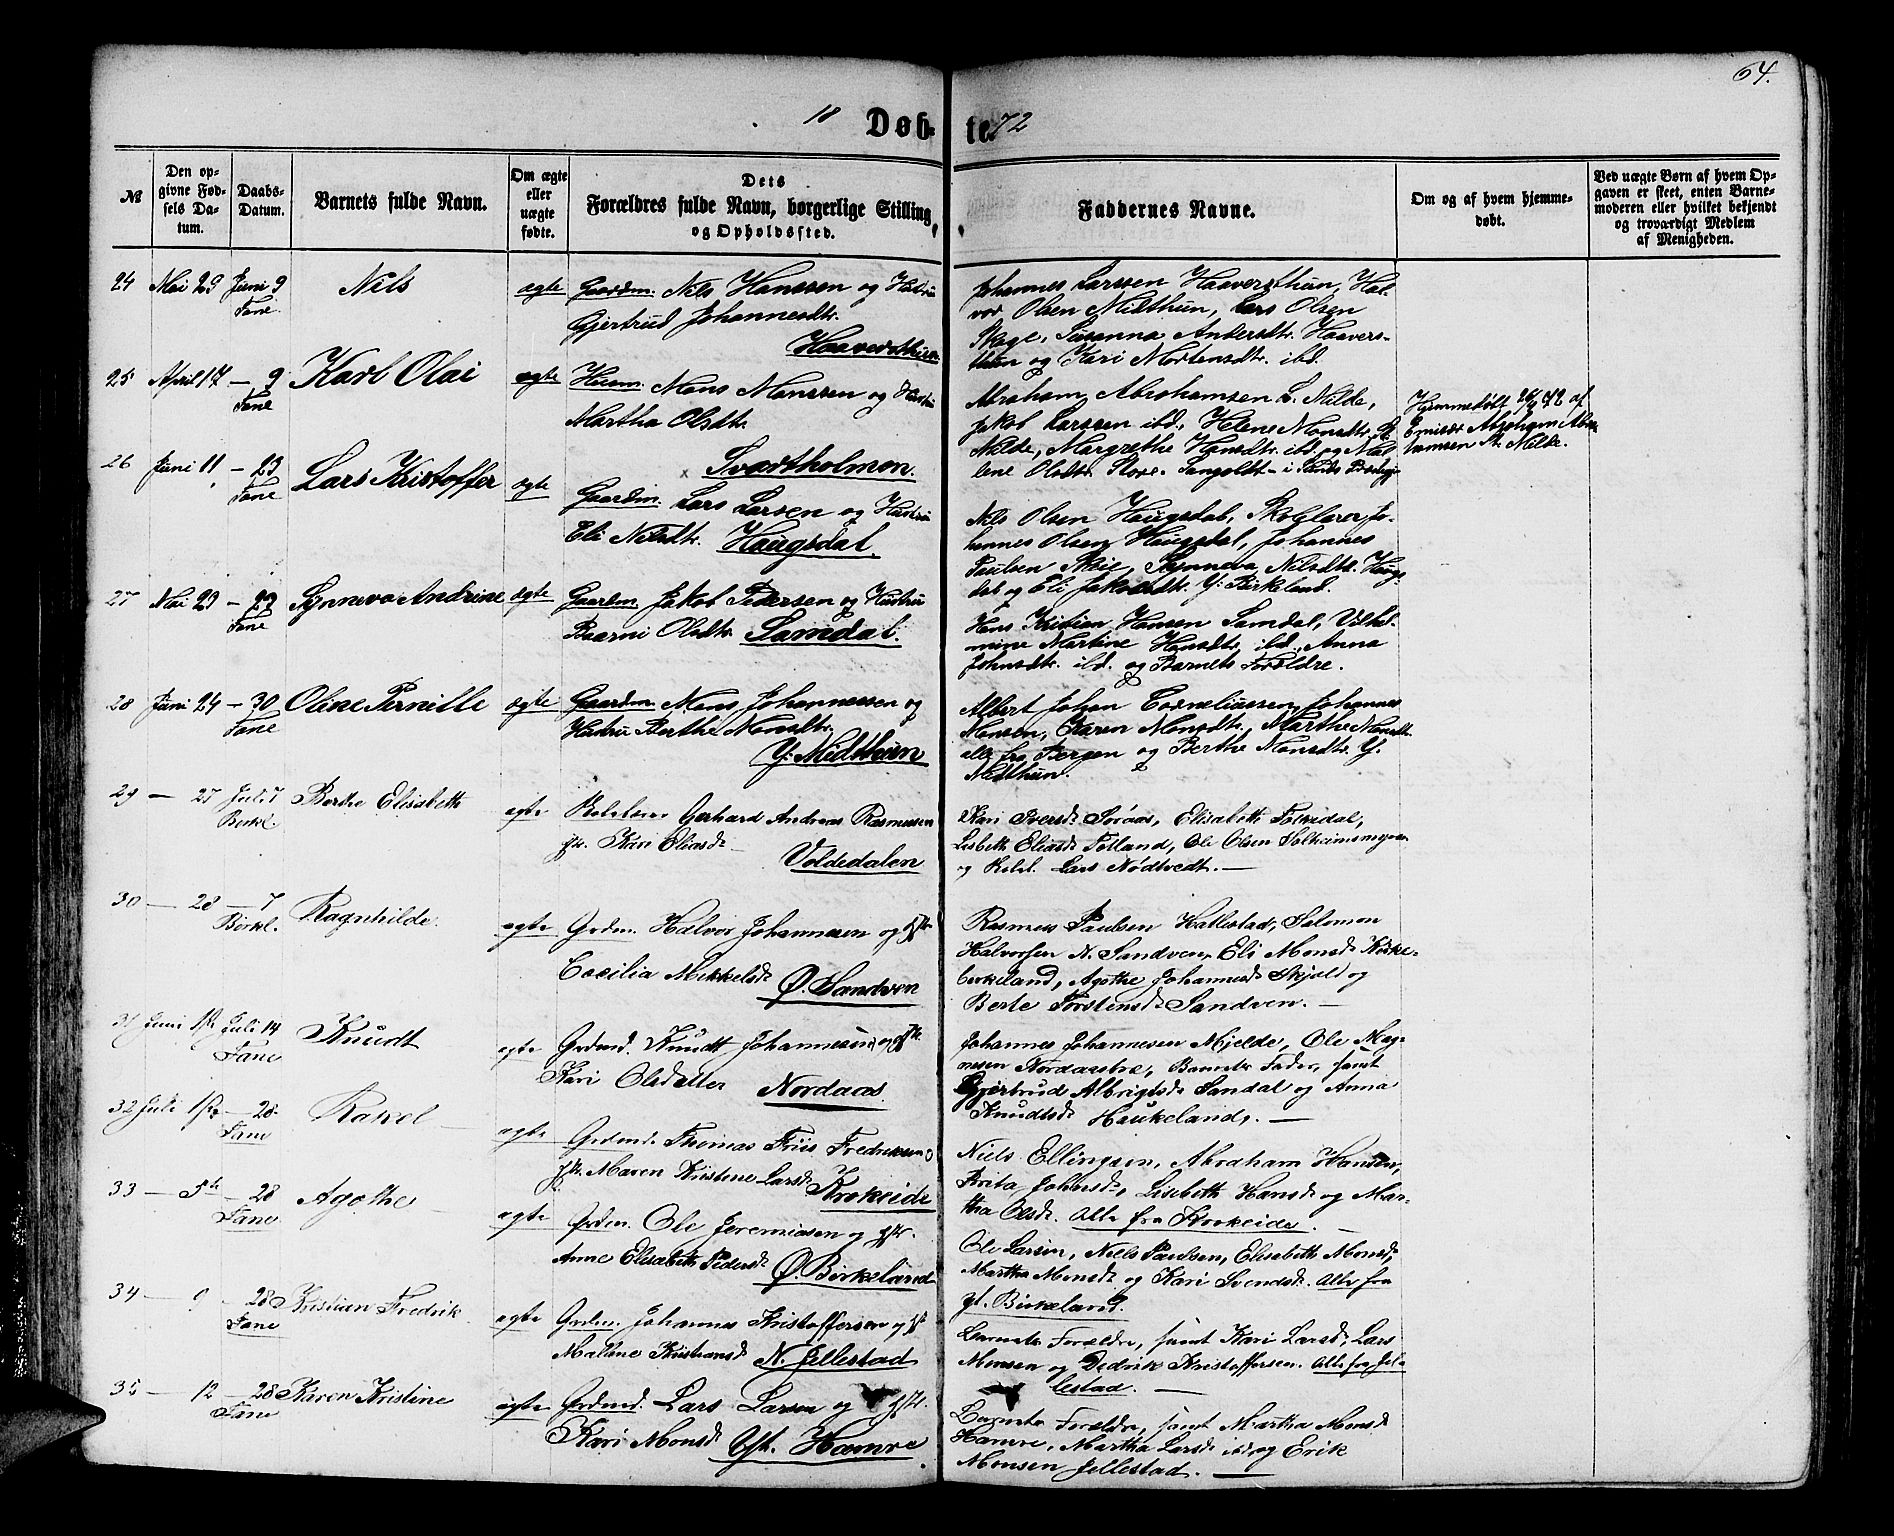 64.
18 Døb- te. 72
№
Den op-
givne Fød-
sels Da-
tum.
Daabs-
Datum.
Barnets fulde Navn.
Om ægte
eller
uægte
fødte.
Dets
Forældres fulde Navn, borgerlige Stilling,
og Opholdssted.
Faddernes Navne.
Om og af hvem hjemme-
døbt.
Ved uægte Børn af hvem Op-
gaven er skeet, enten Barne-
moderen eller hvilket bekjendt
og troværdigt Medlem
af Menigheden.
24 Mai 29 Juni 9 Nils ægte Gaardm. Nils Hanssen og Hustru
Fane Gjertrud Johannesdtr.
Haaversthun
Johannes Larssen Haaversthun, Hal-
vor Olsen Midthun, Lars Olsen
Skage, Susanna Andersdtr. Haavers-
thun og Kari Mortensdtr. ibd.
25 April 17 — 9 Karl Olai ægte Husm. Mons Monssen og Hustru
Fane Martha Olsdtr.
Svartholmen.
Abraham Abrahamsen L. Milde,
Jakob Larssen ibd., Helene Monsdtr. St.
Milde, Margrethe Hansdtr. ibd. og Mal-
lene Olsdtr. Sloxe. Sangoldt - i Sunds Præstegj
Hjemmedøbt 26/4 72 af
Emissær Abraham Abra
hamsen St. Milde.
26 Juni 11 — 23 Lars Kristoffer ægte Gaardm. Lars Larsen og Hustru
Fane Eli Nilsdtr. Haugsdal.
Nils Olsen Haugsdal, Skolelærer Jo-
hannes Olsen Haugsdal, Johannes
Paulsen Skeie, Synneva Nilsdtr. Haugs
dal og Eli Jakobsdtr. Y. Birkeland.
27 Mai 23 — 23 Synneva Andrine ægte Gaardm. Jakob Pedersen og Hustru
Fane Baarni Olsdtr. Samdal.
Hans Kristian Hansen Samdal, Vilhel-
mine Martine Hansdtr. ibd., Anna
Johnsdtr. ibd. og Barnets Forældre.
28 Juni 24 — 30 Oline Pernille ægte Gaardm. Mons Johannessen og
Fane Hustru Berthe Monsdtr.
Y. Midthun
Albert Johan Corneliussen, Johannes
Monsen, Karen Monsdtr., Marthe Monsdtr.
alle fra Bergen og Berthe Monsdtr. Y.
Midthun.
29 — 27 Juli 7 Berthe Elisabeth ægte Gerhard Andreas Rasmussen
Birkl. Hstr. Kari Eliasdr
Voldedalen
Kari Iversdr Søraas, Elisabeth Folkedal,
Lisbeth Eliasdr Tolland, Ole Olsen Solheimsmyren
og Lars Nødtvedt. —
30 — 28 — 7 Ragnhilde ægte Grdm. Halvor Johannesen og Hstr.
Birkl. Cecilia Mikkelsdr Ø. Sandven
Rasmus Paulsen Hallestad, Salomon
Halvorsen N. Sandven, Eli Monsdr Kirke-
birkeland, Agothe Johannesdr Skjold og
Berte Torstensdr Sandven. —
31 Juni Juli 14 Knudt ægte Grdmd. Knudt Johannesen og Hstr.
Fane Kari Olsdatter Nordaas.
Johannes Johannesen Mjelde, Ole Mag-
nesen Nordaastræ, Barnets Fader, samt
Gjertrud Albrigtsdr Sandal og Anna
Knudtsdr Haukeland. —
32 Juli — 28 Rakel ægte Grdmd. Thomas Friis Fredriksen
Fane Hstr. Maren Kristine Larsdr Krokeide
Niels Ellingsen, Abraham Hansen,
Brita Johnsdr, Lisebeth Hansdr og Mar-
tha Olsdr. Alle fra Krokeide. —
33 — 5te — 28 Agothe ægte Grdm. Ole Jeremiasen og Hstr.
Fane Anne Elisabeth Pedersdr Ø. Birkeland
Ole Larsen, Niels Paulsen, Elisabeth Monsdr,
Martha Monsdr og Kari Svendsdr. Alle fra
Birkeland.
34 — 9 — 28 Kristian Fredrik ægte Grdm. Johannes Kristoffersen og Hst
Fane Malene Kristiansdr N. Jellestad
Barnets Forældre, samt Kari Larsdr, Lars
Monsen og Didrik Kristoffersen. Alle fra Jel-
lestad. —
35 — 12 — 28 Karen Kristine ægte Grdmd. Lars Larsen og Hstr.
Fane Kari Monsdr Yt. Hamre
Barnets Forældre, samt Martha Monsdr
Hamre, Martha Larsdr ibd og Erik
Monsen Jellestad. —